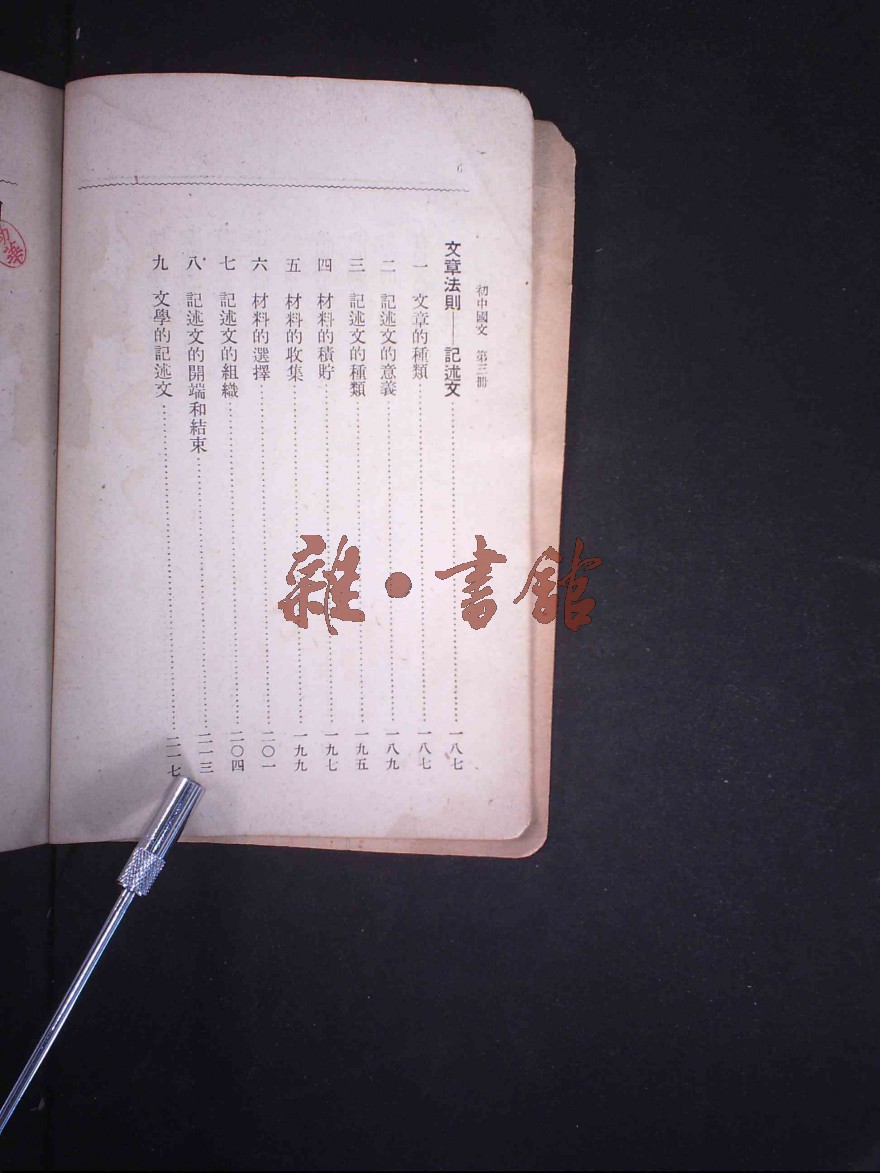 6
初中國文　第三冊
文章法則——記述文……一八七
一　文章的種類……一八七
二　記述文的意義……一八九
三　記述文的種類……一九五
四　材料的積貯……一九七
五　材料的收集……一九九
六　材料的選擇……二〇一
七　記述文的組織……二〇四
八　記述文的開端和結束……二一三
九　文學的記述文……二一七
雜·書館